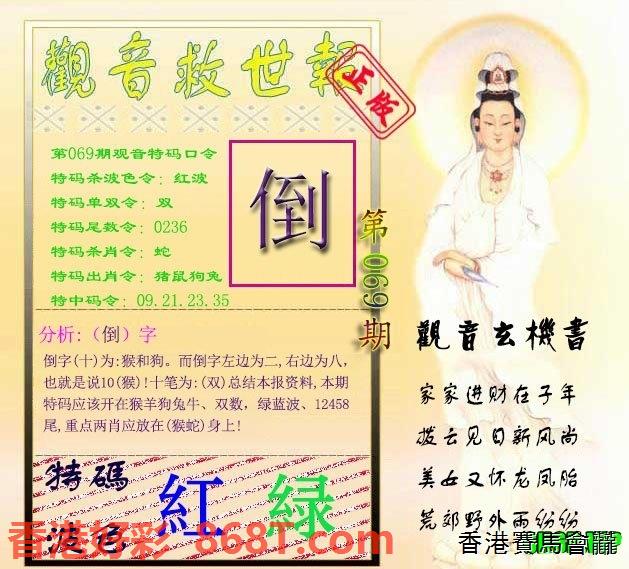 觀音救世報
正版
第069期观音特码口令
特码杀波色令: 红波
特码单双令: 双
特码尾数令: 0236
特码杀肖令: 蛇
特码出肖令: 猪鼠狗兔
特中码令: 09.21.23.35
倒
第069期
分析:（倒）字
倒字(十)为:猴和狗。而倒字左边为二,右边为八,
也就是说10(猴)!十笔为:(双)总结本报资料,本期
特码应该开在猴羊狗兔牛、双数，绿蓝波、12458
尾,重点两肖应放在(猴蛇)身上!
觀音玄機書
家家进财在子年
拨云见日新风尚
美女又怀龙凤胎
荒郊野外雨纷纷
特碼
波色
紅 绿
香港好彩 868T.com
香港賽馬會